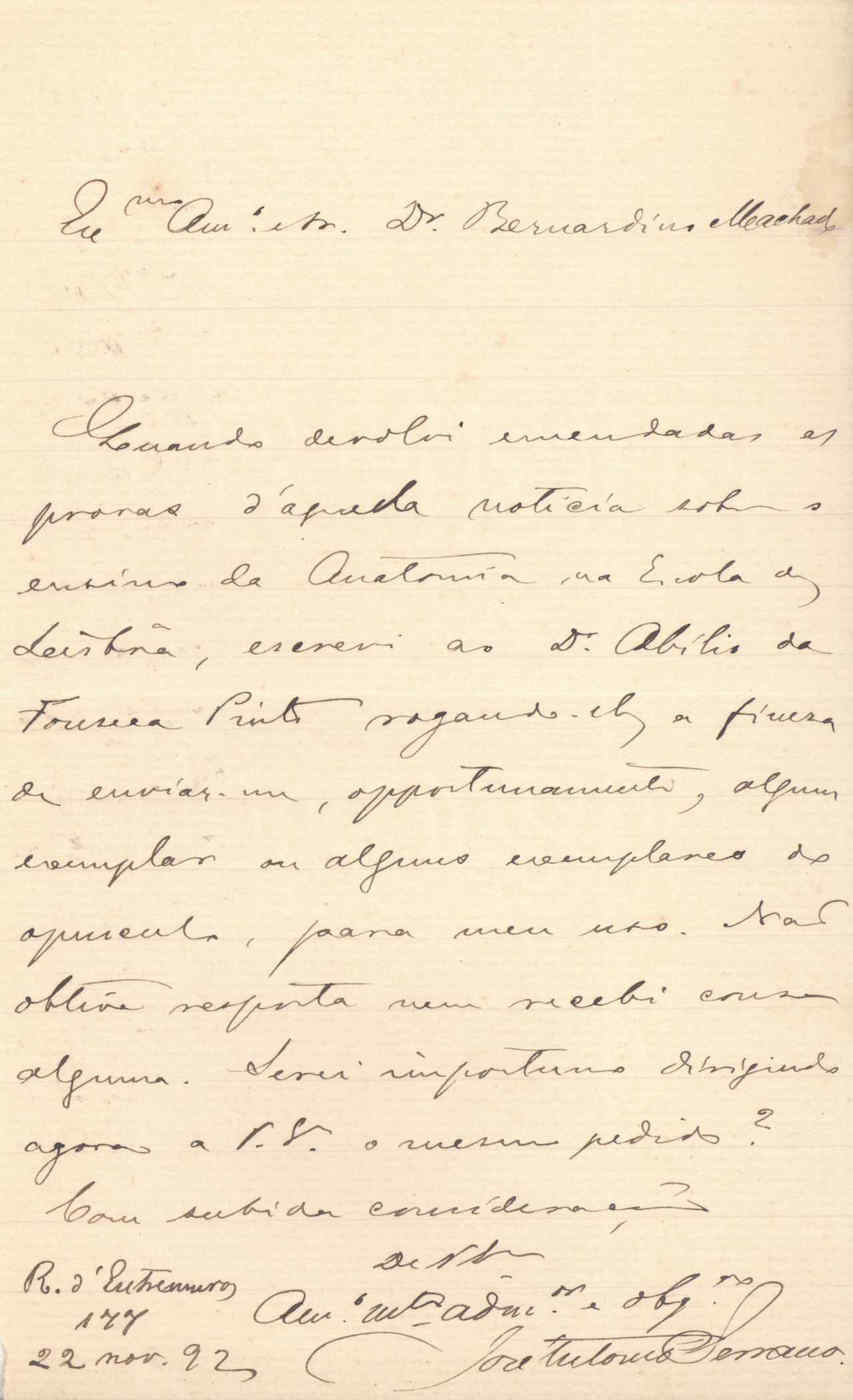 Exmo Amo. e Sr. Dr. Bernardino Machado
Quando devolvi emendadas as
provas d'aquella noticia sobre o
ensino da Anatomia na Escola de
Lisbôa, escrevi ao Dr. Abilio da
Fonseca Pinto rogando-lhe a fineza
de enviar-me, opportunamente, algum
exemplar ou alguns exemplares do
opusculo, para meu uso. Não
obtive resposta nem recebi cousa
alguma. Serei importuno dirigindo
agora a V. Ex. o mesmo pedido?
Com subida consideração
De V. Ex.
R. d'Entremuros
177
Amo. mto. admor. e obgmo
22 nov. 92
José Antonio Serrano.